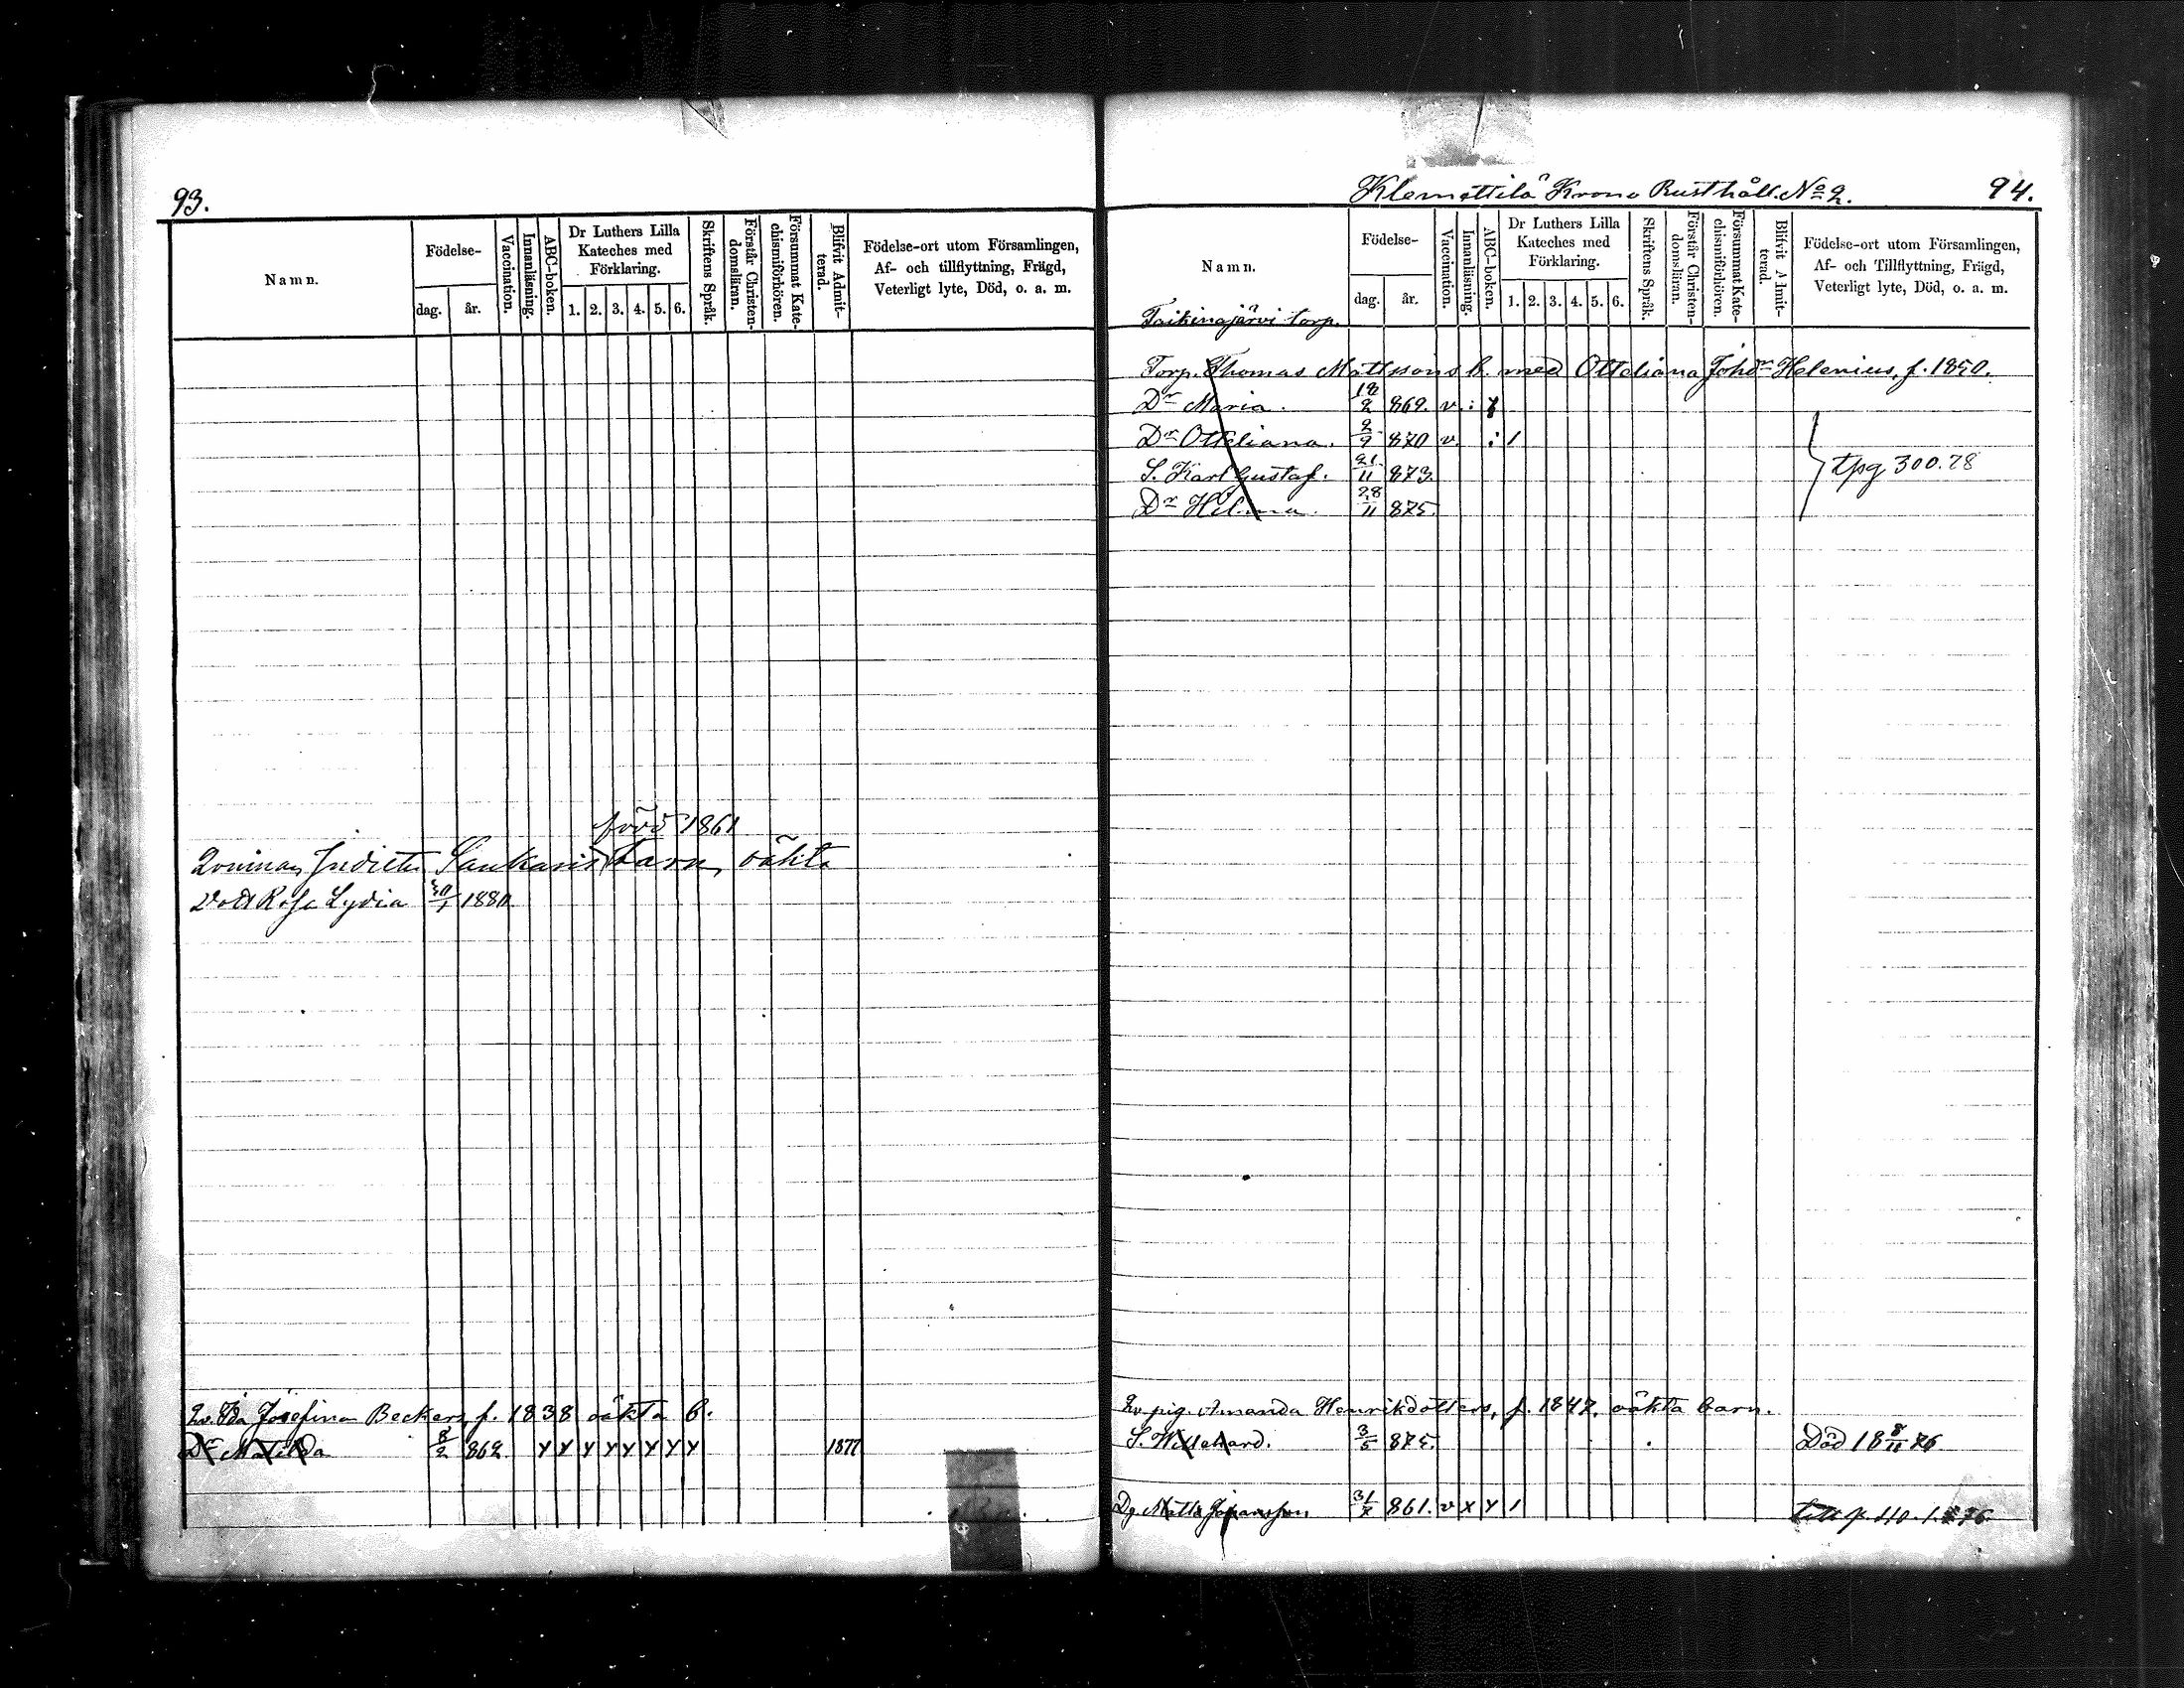 93.
Namn.
Födelse-
dag. år.
Vaccination.
Innanläsning.
ABC-boken.
Dr Luthers Lilla
Kateches med
Förklaring.
1. 2. 3. 4. 5. 6.
Skriftens Språk.
Förstår Christen-
domsläran.
Försummat Kate-
chismiförhören.
Blifvit Admit-
terad.
Födelse-ort utom Församlingen,
Af- och tillflyttning, Frägd,
Veterligt lyte, Död, o. a. m.
född 1861
Qvinnan barn, oäkta
Rosa Lydia 1880
Qv. Ida Josefina Beckers, f. 1838 oäkta b.
Dr Matilda 8/2 862. 1877
Klemettilä Krono Rusthåll. No 2.
94.
Namn.
Födelse-
dag. år.
Vaccination.
Innanläsning.
ABC-boken.
Dr Luthers Lilla
Kateches med
Förklaring.
1. 2. 3. 4. 5. 6.
Skriftens Språk.
Förstår Christen-
domsläran.
Försummat Kate-
chismiförhören.
Blifvit Admit-
terad.
Födelse-ort utom Församlingen,
Af- och Tillflyttning, Frägd,
Veterligt lyte, Död, o. a. m.
Taikinajärvi torp.
Torp. Thomas Mattssons b. med Otteliana Johdr Helenius, f. 1850.
Dr Maria. 18/2 869. v. :
Dr Otteliana. 2/9 870 v. : 1
S. Karl Gustaf. 21/11 873.
tpg 300.78
Dr Hilma. 28/11 875.
Qv. pig. Amanda Henriksdotters, f. 1847, oäkta barn.
S. Willehard. 3/5 875. Död 18 8/11 76
Dg. Matts Johansson 861. v x y 1